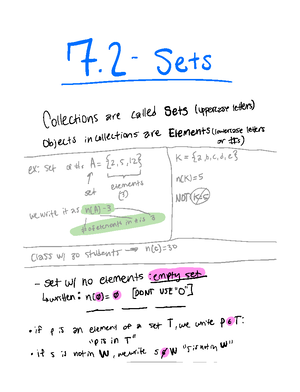 7.2 - Sets
Collections are called Sets (uppercase letters)
Objects in collections are Elements (lowercase letters or #s)
ex: set A = {2,5,12}
set elements
we write it as n(A) = 3
# of elements in A is 3
K = {a,b,c,d,e}
n(K) = 5
NOT K=5
Class w/ 30 students → n(C) = 30
- set w/ no elements : empty set
written: n(∅) = ∅ [DONT USE "0"]
• if p is an element of a set T, we write p ∈ T:
"p is in T"
• if s is not in W, we write s ∉ W "s is not in W"